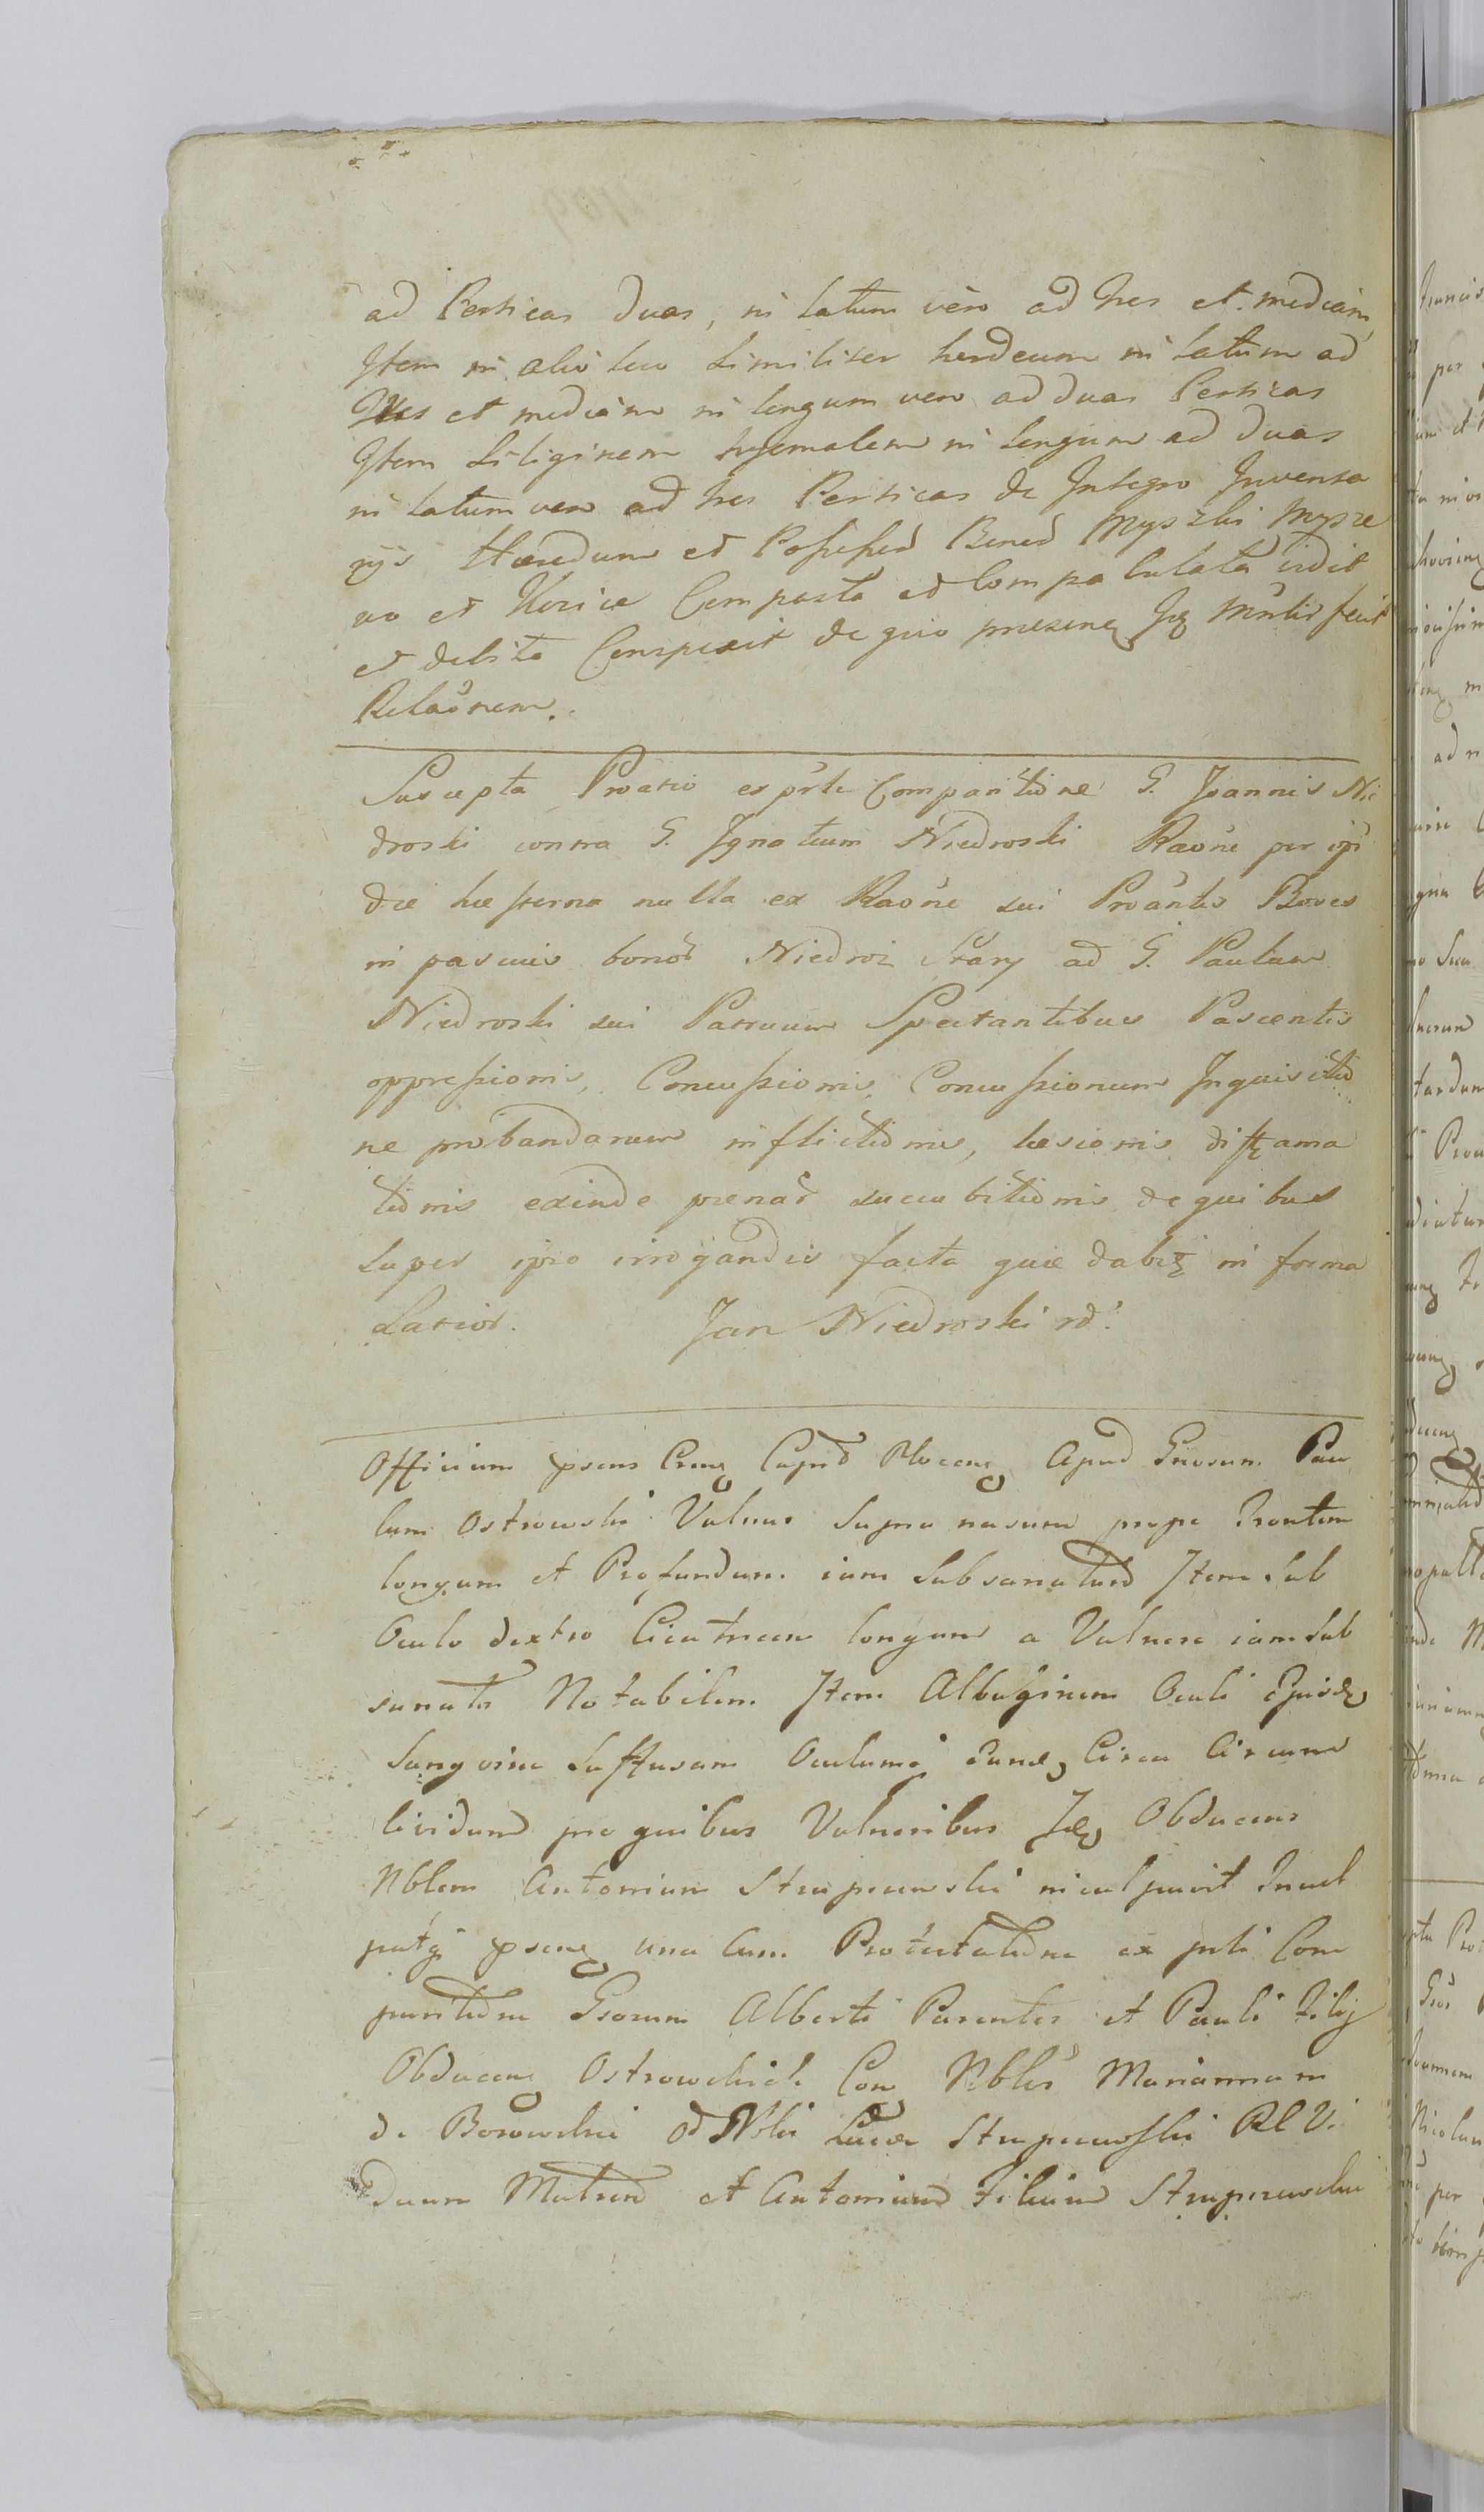 ad Perticas duas, in latum vero ad tres et mediam,
Item in alio loco similiter hordeum in latum ad
tres et mediam in longum vero ad duas Perticas
Item siliginem hyemalem in longum ad duas
in latum vero ad tres Perticas de Integro Inventa
rijs Hæredum et Possess Bened Myszki
vo et Korice Compasta et Compa culcata vidit
et debite Conspexit de quo præsene Jœ Mntis fecit
Relaõnem.
Suscepta Proatio ex prte Comparitione G. Joannis Nie
droski contra G. Ignatium Niedroski Raõne per ipś
die hesterna nulla ex Raõne sui Proantis Boves
in pascuis bonor Niedroż Stary ad G. Paulum
Niedroski sui Patruum Spectantibus Pascentis
oppressionis, Concussionis, Concussionum Inquisitio
ne probandarum inflictionis, læsionis diffama
tionis exinde pœnar succubitionis de quibus
super ipso irrogandis facta quæ dabit in forma
Latior. Jan Niedroski rd.
Officium psens Apud Gnosum Pau
lum Ostrowski Vulnus supra nasum prope Frontem
longum et Profundum iam subsanatum Item sub
Oculo dextro Cicatricem longum a Vulnere iam sub
sanato Notabilem Item Albuginem Oculi Ejusde
Sanguine suffusam Oculumq eund Circa Circum
lividum pro quibus Vulneribus Obducens
Nblem Antonium Strupczewski inculpavit Incul
patq psens una Cum Protestatione ex prti Com
paritione Gsorum Alberti Parentis et Pauli Filij
Obducens Ostrowskich Con Nbles Mariannam
de Borowskie Nblis Lucæ Strupczewski Rel Vi
duam Matrem et Antonium Filium Strupczewskie